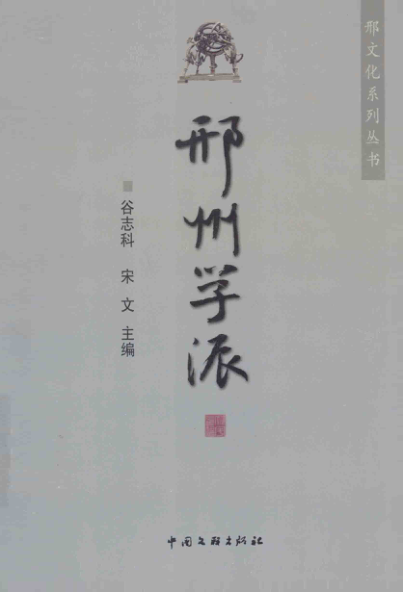 邢文化系列丛书
邢州学派
谷志科 宋文 主编
中国文联出版社